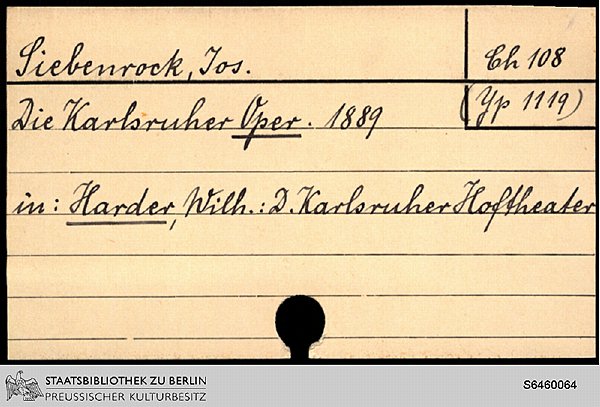 Siebenrock, Jos.
Ch 108
Die Karlsruher Oper. 1889
(Yp 1119)
in: Harder, Wilh.: D. Karlsruher Hoftheater
STAATSBIBLIOTHEK ZU BERLIN
PREUSSISCHER KULTURBESITZ
S6460064